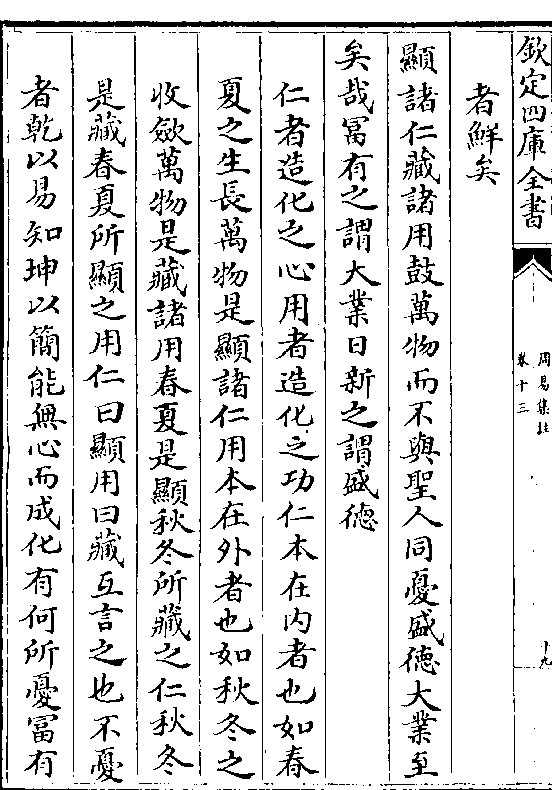 欽定四庫全書
周易集註
卷十三
十九
者鮮矣
顯諸仁藏諸用鼓萬物而不與聖人同憂盛德大業至
矣哉冨有之謂大業日新之謂盛德
仁者造化之心用者造化之功仁本在内者也如春
夏之生長萬物是顯諸仁用本在外者也如秋冬之
收斂萬物是藏諸用春夏是顯秋冬所藏之仁秋冬
是藏春夏所顯之用仁曰顯用曰藏互言之也不憂
者乾以易知坤以簡能無心而成化有何所憂冨有